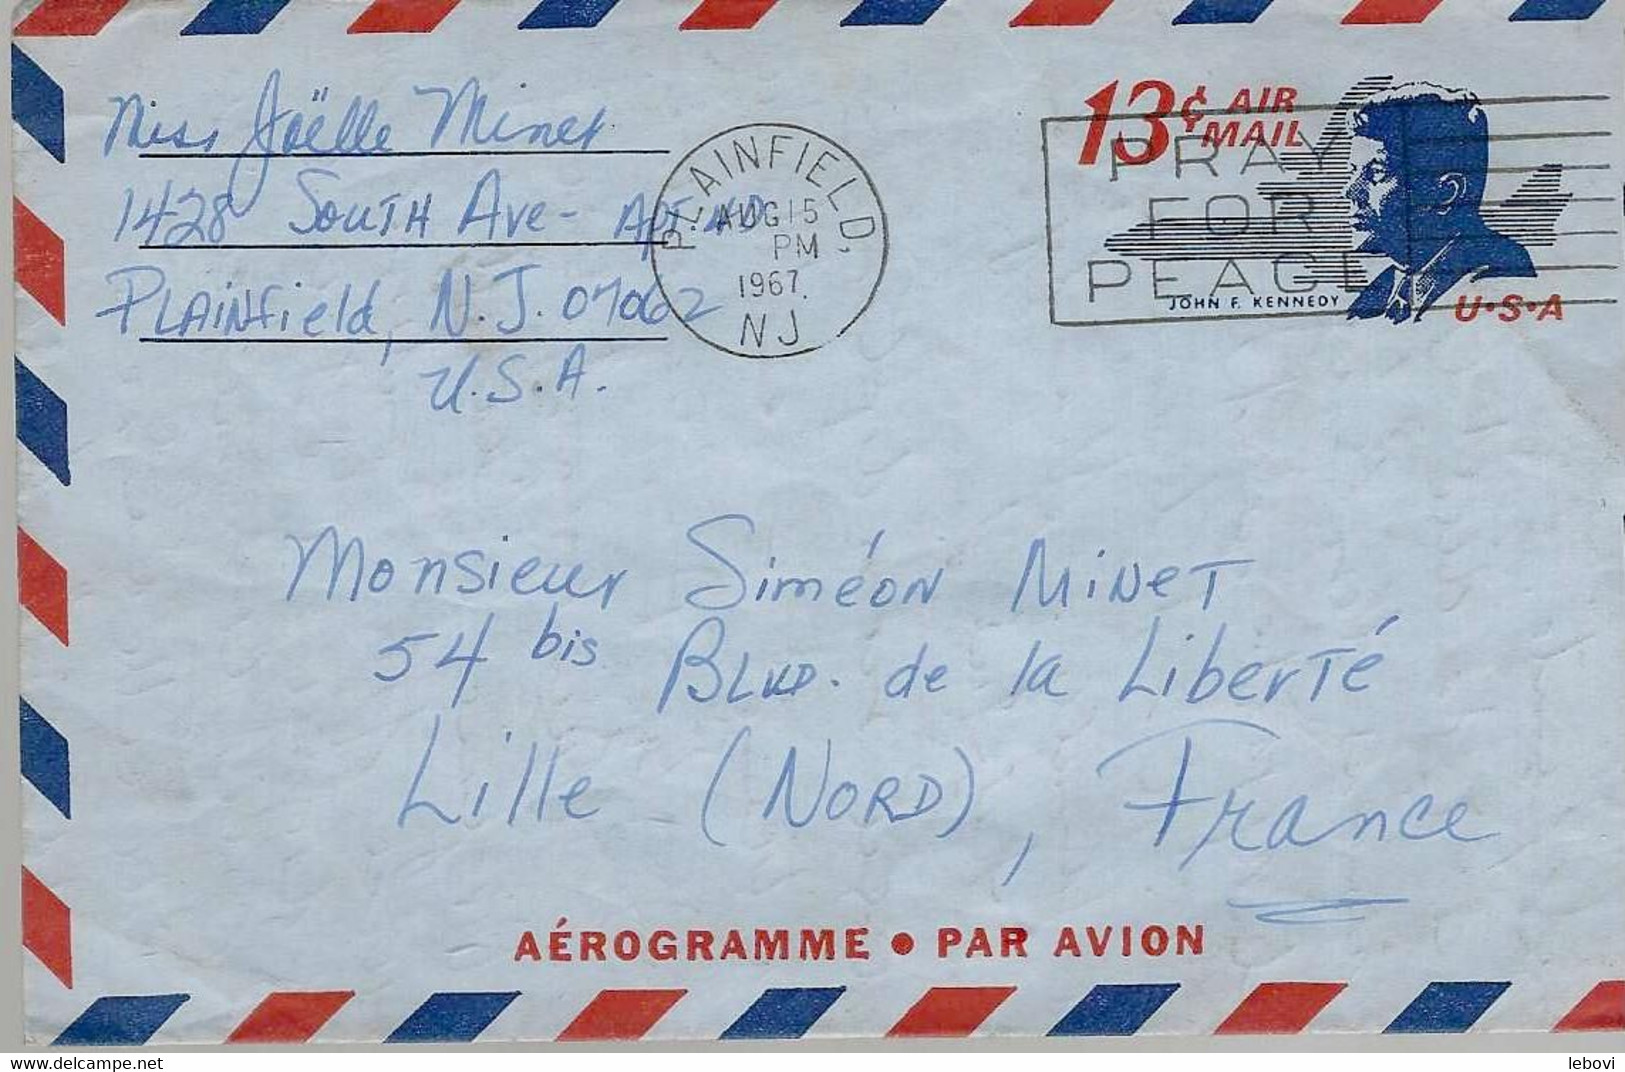 Miss Joëlle Minet
1428 South Ave - Apt 4D
Plainfield, N.J. 07062
U.S.A.
PLAINFIELD,
AUG 15
PM
1967
NJ
PRAY
FOR
PEACE
13¢ AIR
MAIL
JOHN F. KENNEDY
U·S·A
Monsieur Siméon MINET
54 bis Blvd. de la Liberté
Lille (NORD), France
AÉROGRAMME • PAR AVION
lebovi